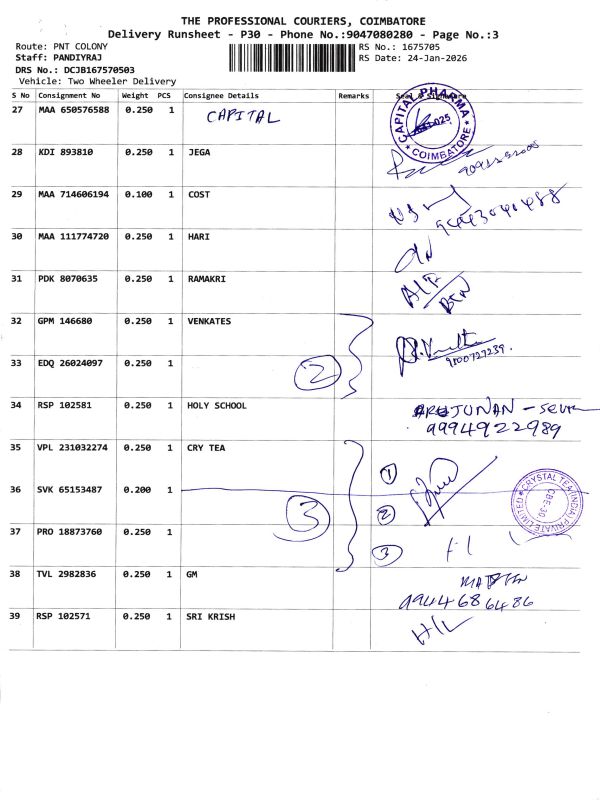 THE PROFESSIONAL COURIERS, COIMBATORE
Delivery Runsheet - P30 - Phone No.:9047080280 - Page No.:3
Route: PNT COLONY
Staff: PANDIYRAJ
DRS No.: DCJB167570503
Vehicle: Two Wheeler Delivery
RS No.: 1675705
RS Date: 24-Jan-2026
S No Consignment No Weight PCS Consignee Details Remarks
27 MAA 650576588 0.250 1 CAPITAL
CAPITAL PHARMA
COIMBATORE
28 KDI 893810 0.250 1 JEGA
29 MAA 714606194 0.100 1 COST
30 MAA 111774720 0.250 1 HARI
31 PDK 8070635 0.250 1 RAMAKRI
32 GPM 146680 0.250 1 VENKATES
9100727239.
33 EDQ 26024097 0.250 1
2
34 RSP 102581 0.250 1 HOLY SCHOOL
9994922989
35 VPL 231032274 0.250 1 CRY TEA
1
36 SVK 65153487 0.200 1
3
2
CRYSTAL TEA (INDIA) PRIVATE LIMITED
CBE-30
37 PRO 18873760 0.250 1
3
38 TVL 2982836 0.250 1 GM
9944686486
39 RSP 102571 0.250 1 SRI KRISH
H/L